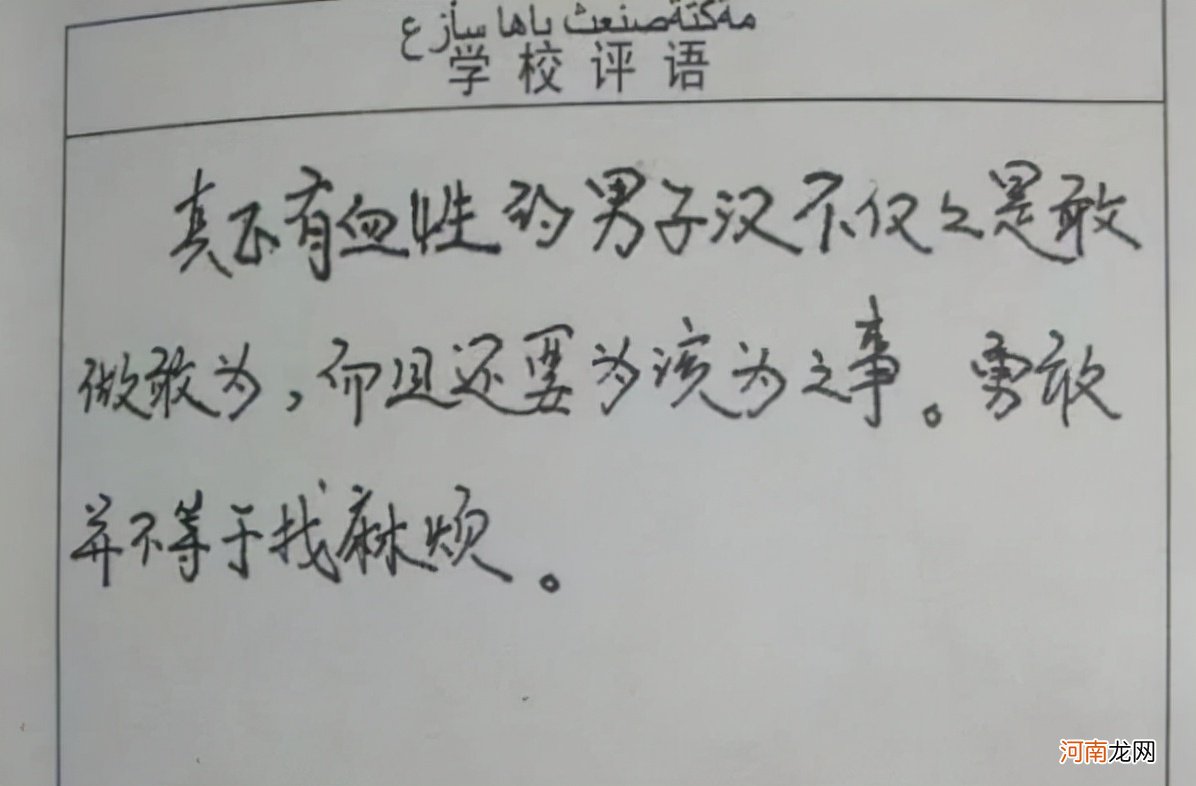 مةكتةصنعث باها سأزع
学校评语
真正有血性的男子汉不仅々是敢
做敢为,而且还要为该为之事。勇敢
并不等于找麻烦。
河南龙网